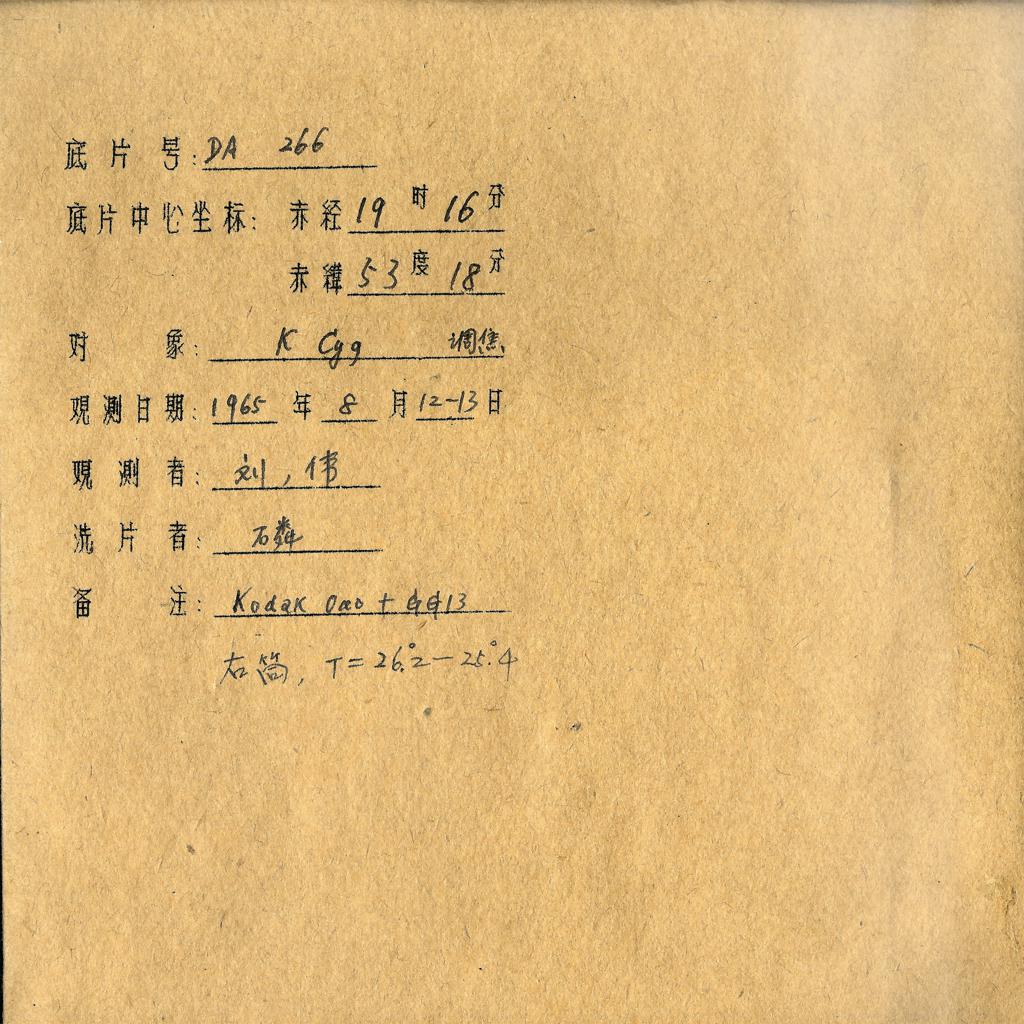 底片号: DA 266
底片中心坐标: 赤经 19 时 16 分
赤緯 53 度 18 分
对 象: K Cyg 调焦
观测日期: 1965 年 8 月 12-13 日
观测者: 刘, 伟
洗片者: 石粦
备 注: Kodak Oao + GG13
右筒, T = 26°.2 — 25°.4